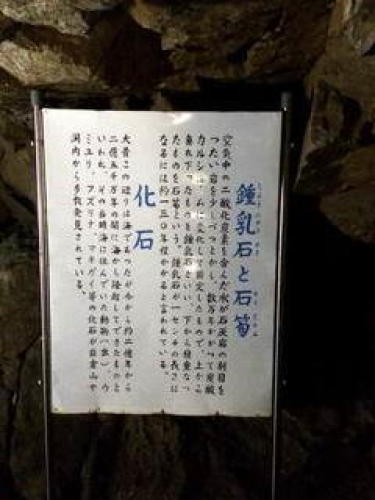 鍾乳石と石筍
空気中の二酸化炭素を含んだ水が石灰岩の割目を
つたい岩を少しづつとかし、数万年かかって炭酸
カルシュームに変化して固定したもので、上から
垂れ下ったものを鍾乳石といい、下から積重なっ
たものを石筍という。鍾乳石が一センチの長さに
なるには約一三〇年位かかると言われている。
化石
大昔この辺りは海であったが今から約二億年から
二億五千万年の間に海から隆起してできたものと
いわれ、その当時海に住んでいた動物(虫)、ウ
ミユリ、フズリナ、マキガイ等の化石が日倉山や
洞内から多数発見されている。